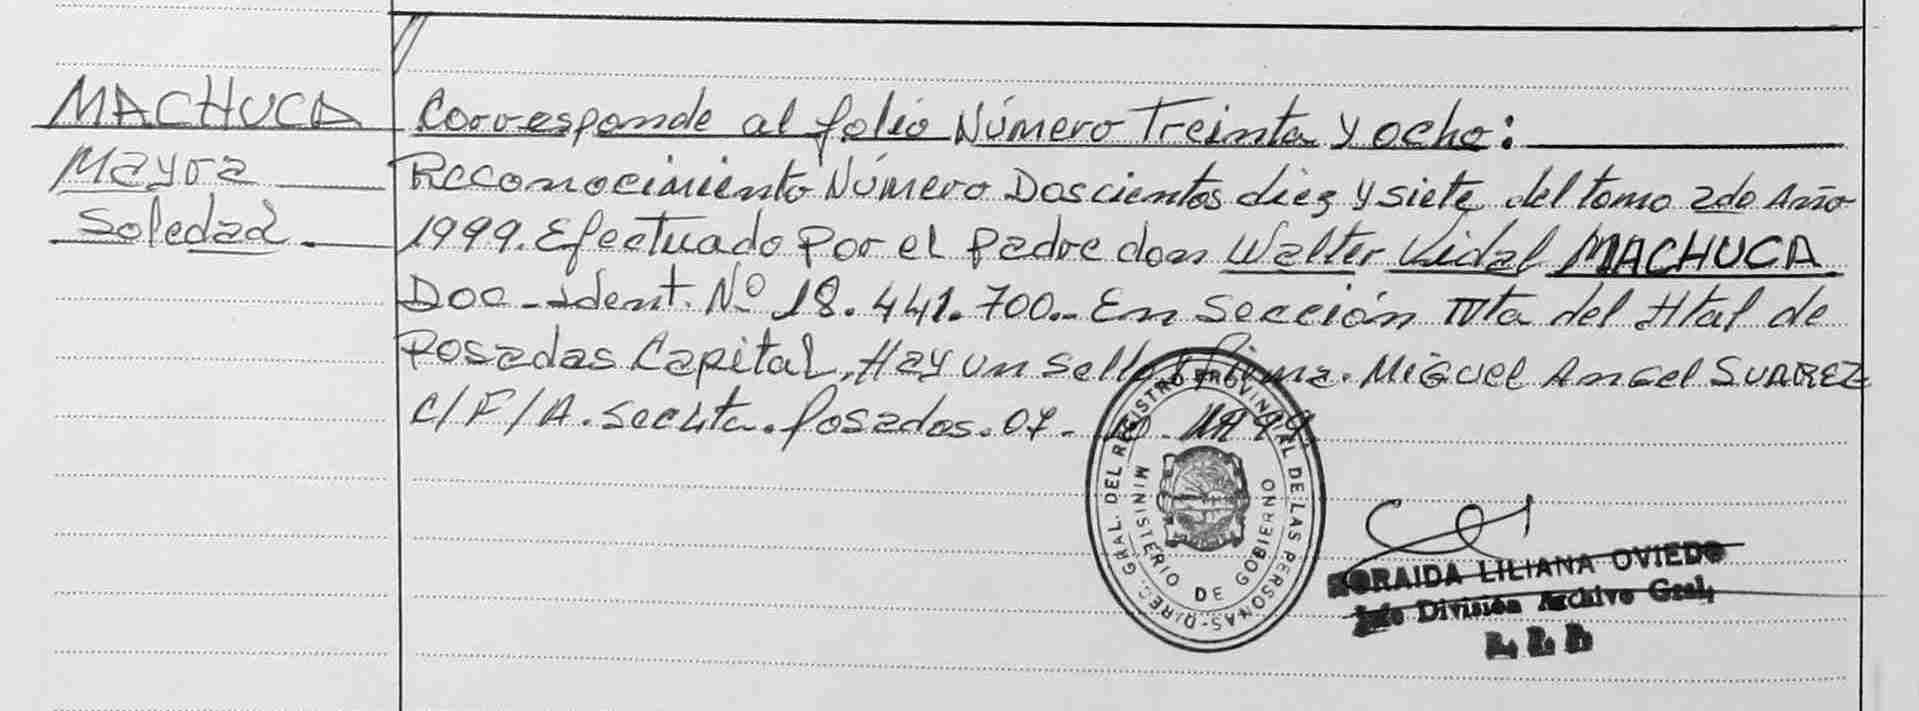 MACHUCA
Mayra
Soledad.
Corresponde al folio Número Treinta y ocho:
Reconocimiento Número Doscientos diez y siete del tomo 2do Año
1999. Efectuado por el padre don Walter Vidal MACHUCA
Doc. Ident. Nº 18.441.700.- En Sección IVta del Htal de
Posadas Capital. Hay un sello y firma. Miguel Angel SUAREZ
C/F/A. Sec 4ta. Posadas. 07- 10- 1999.
DIREC. GRAL. DEL REGISTRO PROVINCIAL DE LAS PERSONAS
MINISTERIO DE GOBIERNO
ZORAIDA LILIANA OVIEDO
Jefe División Archivo Gral.
R. P. P.